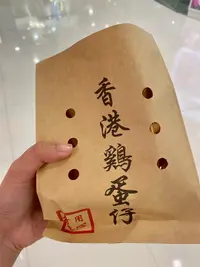 香港鷄蛋仔